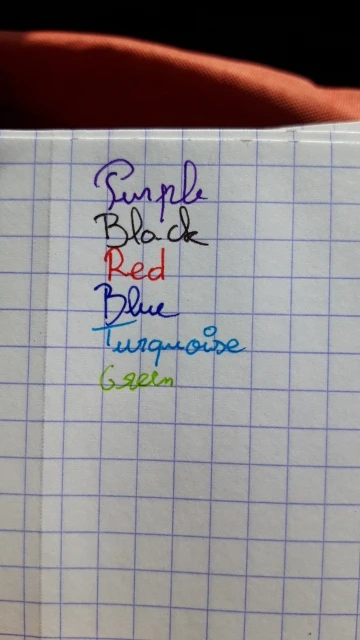 Purple
Black
Red
Blue
Turquoise
Green